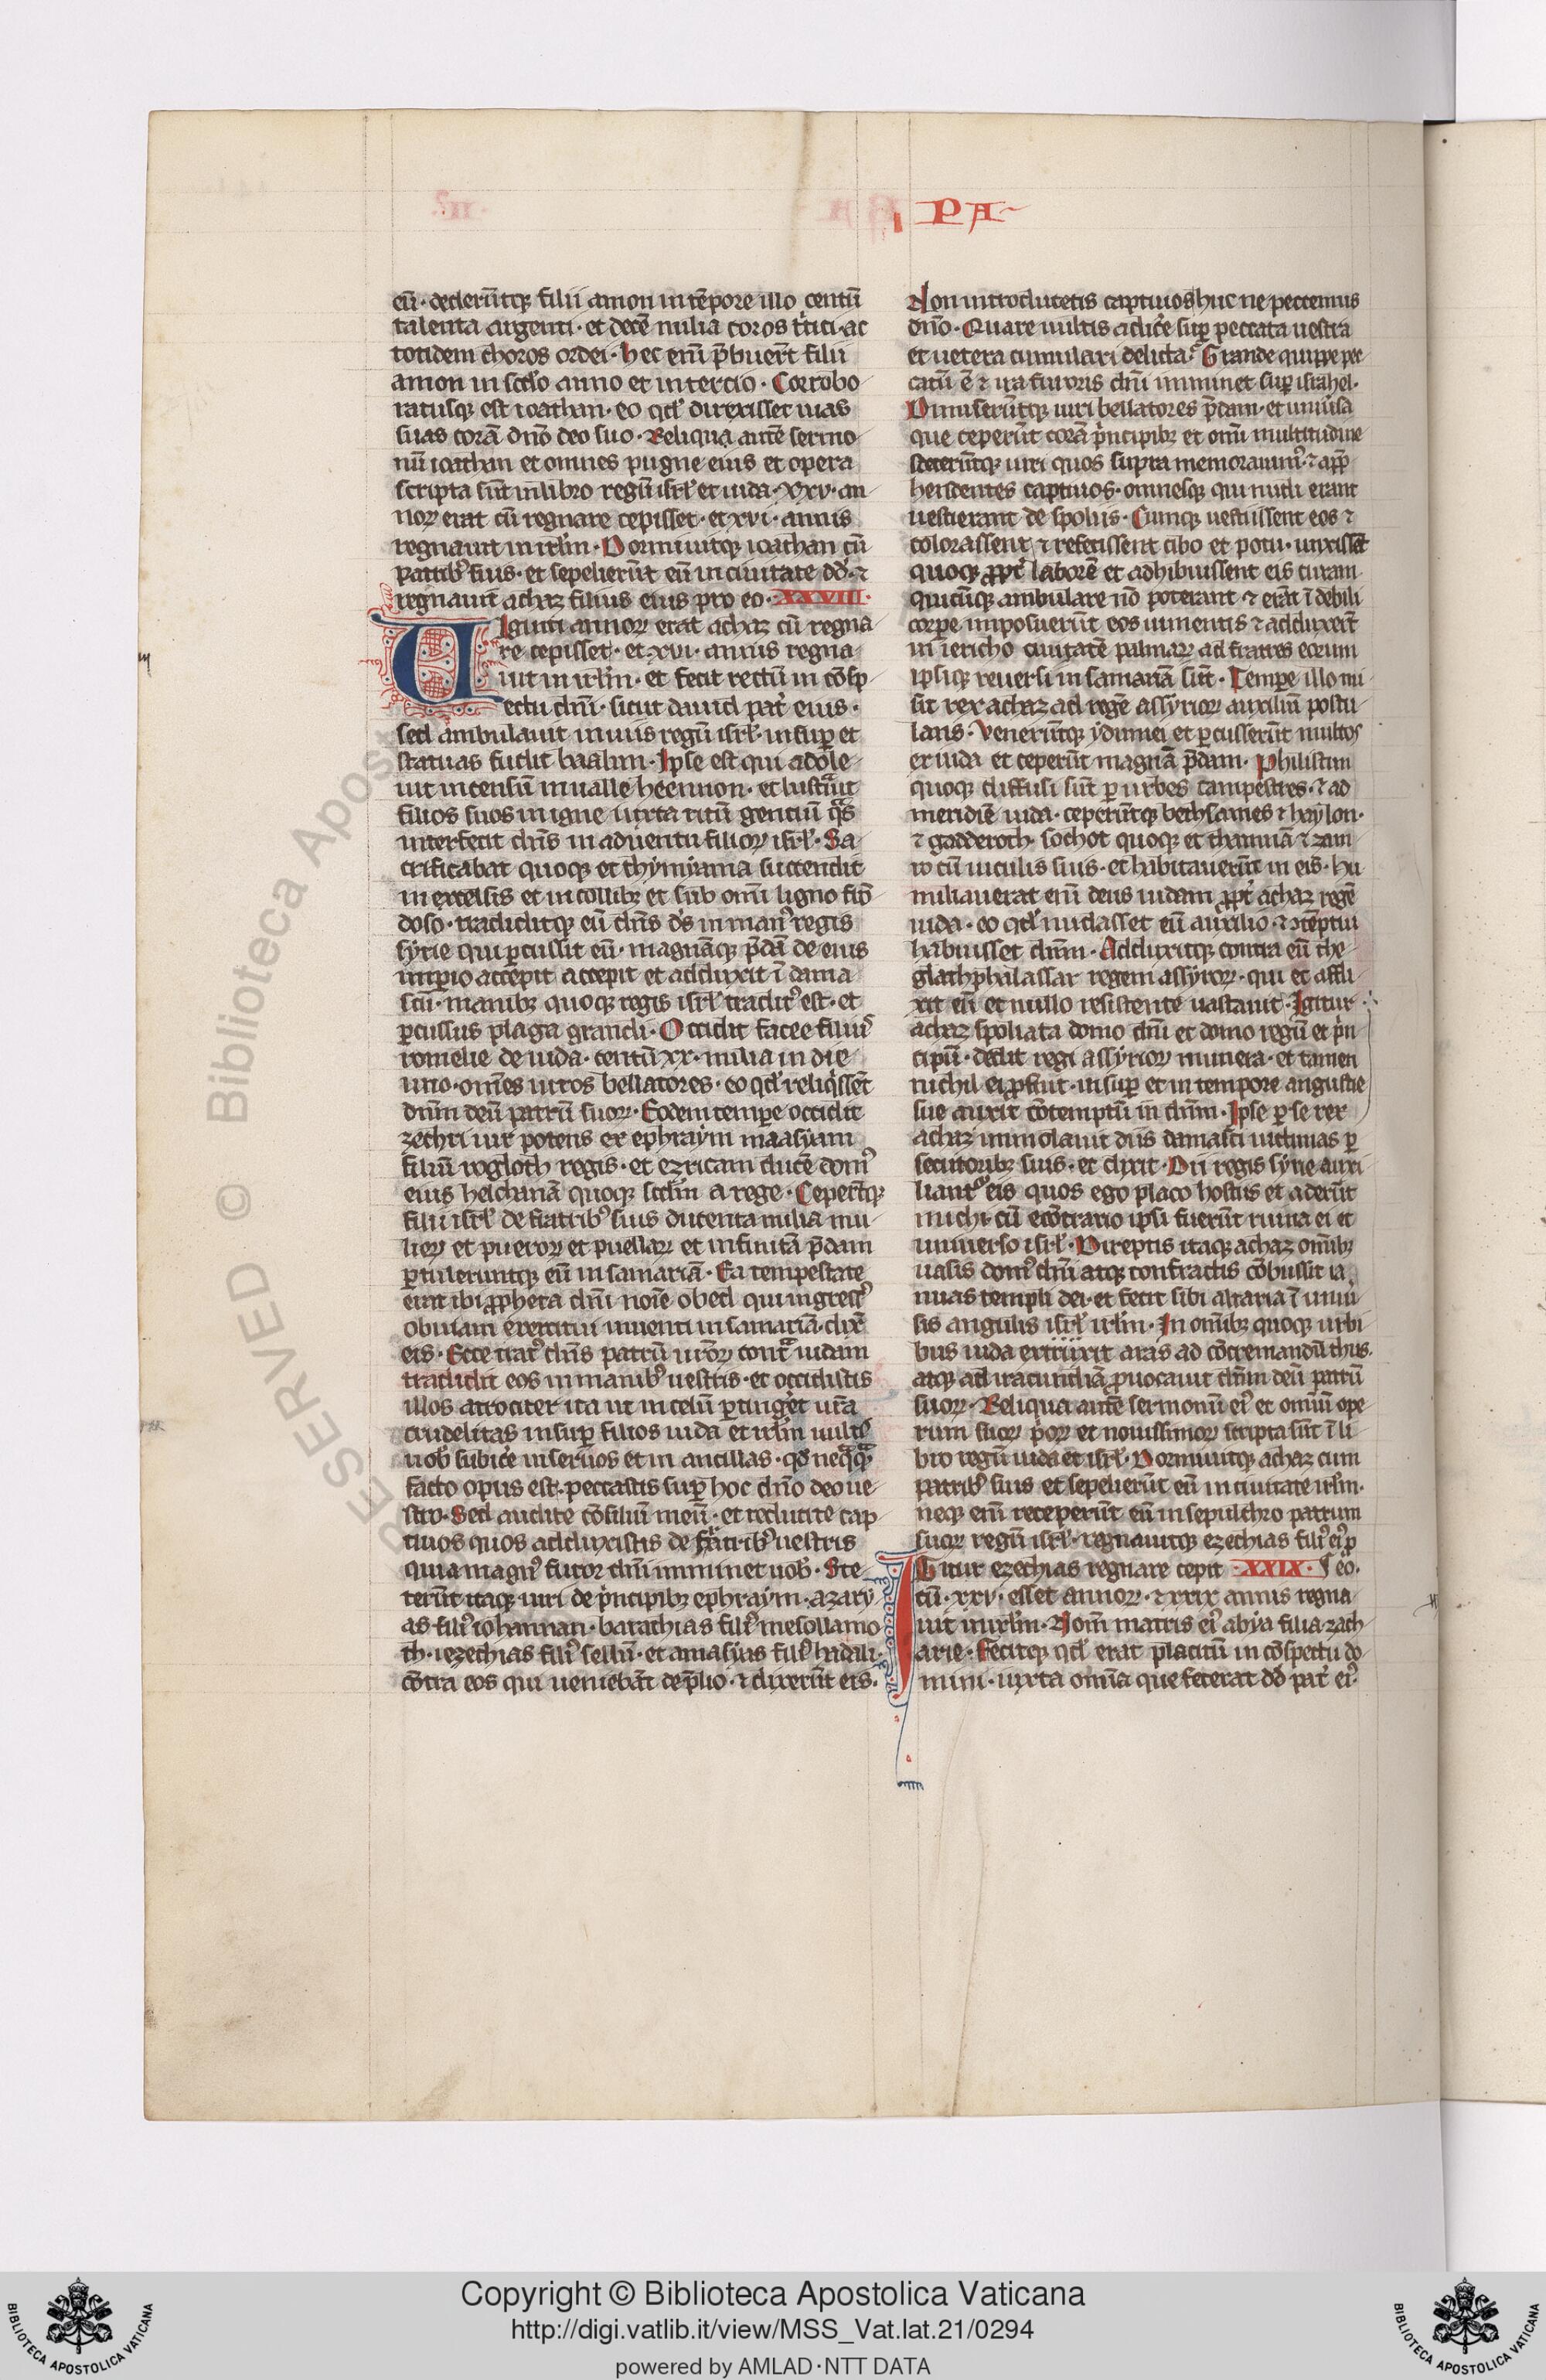 PA
eu̅· dederu̅tq; filii amon in te̅pore illo centu̅
talenta argenti· et dece̅ milia coros t̍tici· ac
totidem choros ordei· Hec eni̅ p̅buer̅t filii
amon in scd̅o anno et in tercio· Corrobo
ratusq; est ioathan· eo qd̕ direxisset uias
suas cora̅ dn̅o deo suo· Reliqua aute̅ sermo
nu̅ ioathan et omnes pugne eius et opera
scripta su̅t in libro regu̅ isrl̕ et iuda· xxv· an
noꝝ erat cu̅ regnare cepisset· et xvi· annis
regnauit in irl̅m· Dormiuitq; ioathan cu̅
patrib᾽ suis· et sepelieru̅t eu̅ in ciuitate dd̅· ⁊
regnauit achaz filius eius pro eo· XXVIII·
UIginti annoꝝ erat achaz cu̅ regna
re cepisset· et xvi· annis regna
uit in irl̅m· et fecit rectu̅ in co̅sp
ectu dn̅i· sicut dauid pat̍ eius·
sed ambulauit in uiis regu̅ isrl̕· insup̱ et
statuas fudit baalim· Ipse est qui adole
uit incensu̅ in ualle heennon· et lustᷓuit
filios suos in igne iuxta ritu̅ gentiu̅ qᷓs
interfecit dn̅s in aduentu filioꝝ isrl̕· Sa
crificabat quoq; et thymyama succendit
in excelsis et in collib; et sub omi̅ ligno fro̅
doso· tradiditq; eu̅ dn̅s d̕s in man᾽ regis
syrie qui p̱cussit eu̅· magna̅q; p̅da̅ de eius
imp̱io accepit accepit et adduxit i̅ dama
scu̅· manib; quoq; regis isrl̕ tradit᾽ est· et
p̱cussus plaga grandi· Occidit facee filiu᾽
romelie de iuda· centu̅ xx· milia in die
uno· om̅es uiros bellatores· eo qd̕ reliq̍sse̅t
dn̅m deu̅ patru̅ suoꝝ· Eodem temp̱e occidit
zechri uir potens ex ephraym maasyam
filiu̅ rogloth regis· et ezricam duce̅ dom᾽
eius helchana̅ quoq; scd̅m a rege· Ceper̅tq;
filii isrl̕ de fratrib᾽ suis ducenta milia mu
lieꝝ et pueroꝝ et puellaꝝ et infinita̅ p̅dam
p̱tuleruntq; eu̅ in samaria̅· Ea tempestate
erat ibi ꝓpheta dn̅i noi̅e obed qui ingress᾽
obuiam exercitui uenienti in samaria̅· dix̅
eis· Ecce irat᾽ dn̅s patru̅ ur̅oꝝ contᷓ iudam
tradidit eos in manib᾽ uestris· et occidistis
illos atrociter ita ut in celu̅ p̱tinge̍t ur̅a
crudelitas insup̱ filios iuda et irl̅m uult᾽
uob᾽ subice̍ in seruos et in ancillas· qd̕ neqᷓqᷓ
facto opus est· peccastis sup̱ hoc dn̅o deo ue
stro· Sed audite co̅siliu̅ meu̅· et reducite cap
tiuos quos adduxistis de fratrib᾽ uestris
quia magn᾽ furor dn̅i imminet uob᾽· Ste
teru̅t itaq; uiri de p̍ncipib; ephraym· azary
as fili᾽ iohannan· barachias fili᾽ mesollamo
th· iezechias fili᾽ sellu̅· et amasyas fili᾽ hadali·
co̅tra eos qui ueniebа̅t de p̅lio· ⁊ dixeru̅t eis·
Non introducetis captiuos huc ne peccemus
dn̅o· Quare uultis adice̍ sup̱ peccata uestra
et uetera cumulari delicta· Grande quippe pec
catu̅ e̅ ⁊ ira furoris dn̅i imminet sup̱ israhel·
Dimiseru̅tq; uiri bellatores p̅dam· et uniu̍sa
que ceperu̅t cora̅ p̍ncipib; et omi̅ multitudine
steteru̅tq; uiri quos supra memorauim᾽· ⁊ app̅
hendentes captiuos· omnesq; qui nudi erant
uestierant de spoliis· Cumq; uestiissent eos ⁊
colorassent ⁊ refecissent cibo et potu· unxisse̅t
quoq; ꝓpt̍ labore̅ et adhibuissent eis curam·
quicu̅q; ambulare no̅ poterant ⁊ era̅t i̅ debili
corp̱e imposueru̅t eos iumentis ⁊ adduxer̅t
in iericho ciuitate̅ palmaꝝ ad fratres eorum
ipsiq; reuersi in samaria̅ su̅t· Temp̱e illo mi
sit rex achaz ad rege̅ assyrioꝝ auxiliu̅ postu
lans· Veneru̅tq; ydumei et p̱cusseru̅t multos
ex iuda et ceperu̅t magna̅ p̅dam· Philistiim
quoq; diffusi su̅t p̱ urbes campestres· ⁊ ad
meridie̅ iuda· ceperu̅tq; bethsames ⁊ haylon·
⁊ gadderoth· sochot quoq; et thamna̅ ⁊ zam
ro cu̅ uiculis suis· et habitaueru̅t in eis· hu
miliauerat eni̅ deus iudam ꝓpt̍ achaz rege̅
iuda· eo qd̕ nudasset eu̅ auxilio· ⁊ ꝯte̅ptui
habuisset dn̅m· Adduxitq; contra eu̅ the
glathphalassar regem assyroꝝ· qui et affli
xit eu̅ et nullo resistente uastauit· Igitur
achaz spoliata domo dn̅i et domo regu̅ et p̍n
cipu̅· dedit regi assyrioꝝ munera· et tamen
nichil ei ꝓfuit· insup̱ et in tempore angustie
sue auxit co̅temptu̅ in dn̅m· Ipse p̱ se rex
achaz immolauit diis damasci uictimas p̱
secutorib; suis· et dixit· Dii regis syrie auxi
liant᾽ eis quos ego placo hostiis et aderu̅t
michi· cu̅ eco̅trario ipsi fueru̅t ruina ei et
uniuerso isrl̕· Direptis itaq; achaz omi̅b;
uasis dom᾽ dn̅i atq; confractis co̅bussit ia
nuas templi dei· et fecit sibi altaria i̅ uniu̍
sis angulis irl̅m· In omi̅b; quoq; urbi
bus iuda extruxit aras ad co̅cremandu̅ thus·
atq; ad iracundia̅ ꝓuocauit dn̅m deu̅ patru̅
suoꝝ· Reliqua aute̅ sermonu̅ ei᾽ et omiu̅ ope
rum suoꝝ p̍oꝝ et nouissimoꝝ scripta su̅t i̅ li
bro regu̅ iuda et isrl̕· Dormiuitq; achaz cum
patrib᾽ suis et sepelieru̅t eu̅ in ciuitate irl̅m·
neq; eni̅ receperu̅t eu̅ in sepulchro patrum
suoꝝ regu̅ isrl̕· regnauitq; ezechias fili᾽ ei᾽ p̱
IGitur ezechias regnare cepit ·XXIX· ¶ eo·
cu̅· xxv· esset annoꝝ· ⁊ xxix annis regna
uit in irl̅m· Nom̅ matris ei᾽ abya filia zach
arie· Fecitq; qd̕ erat placitu̅ in co̅spectu do
mini· iuxta omi̅a que fecerat dd̅ pat̍ ei᾽
RESERVED © Biblioteca Apost
Copyright © Biblioteca Apostolica Vaticana
http://digi.vatlib.it/view/MSS_Vat.lat.21/0294
powered by AMLAD·NTT DATA
BIBLIOTECA APOSTOLICA VATICANA
BIBLIOTECA APOSTOLICA VATICANA